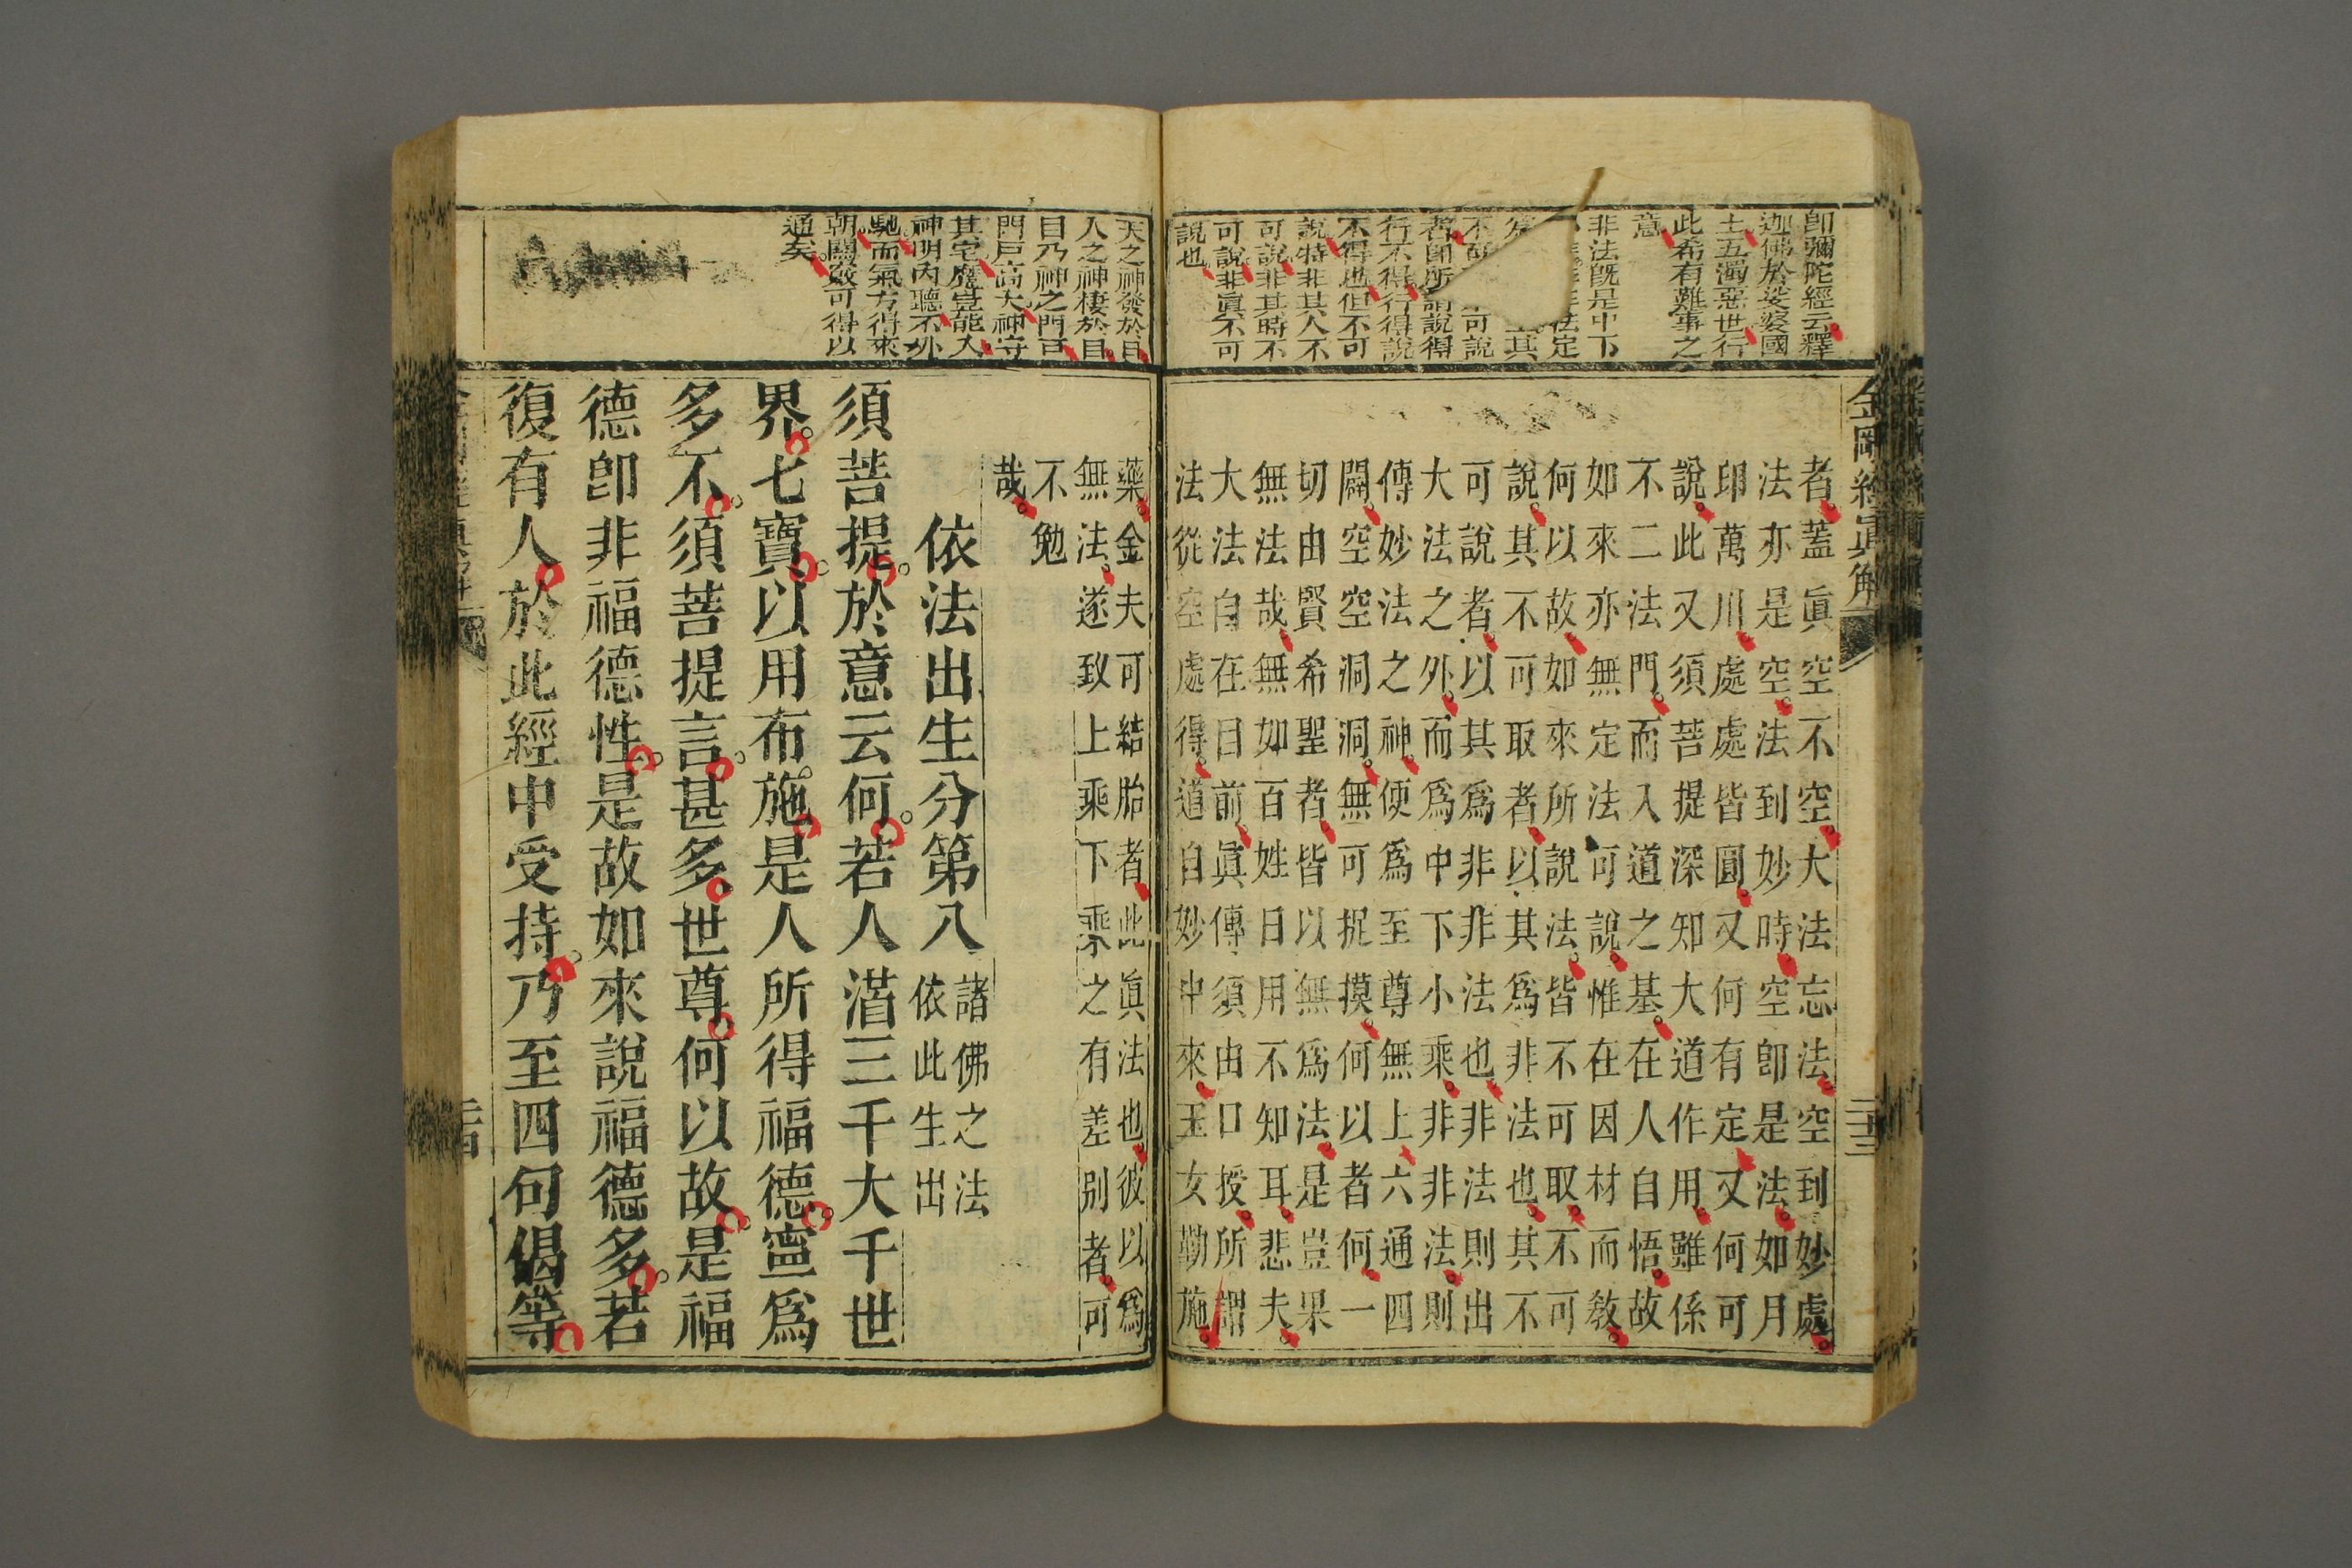 金剛經眞解
二十三
卽彌陀經云釋
迦佛於娑婆國
土五濁惡世行
此希有難事之
意
非法旣是中下
法定
其
不可說
者卽所謂說得
行不得行得說
不得也但不可
說特非其人不
可說非其時不
可說非眞不可
說也
者蓋眞空不空大法忘法空到妙處
法亦是空法到妙時空卽是法如月
印萬川處處皆圓又何有定又何可
說此又須菩提深知大道作用雖係
不二法門而入道之基在人自悟故
如來亦無定法可說惟在因材而敎
何以故如來所說法皆不可取不可
說其不可取者以其爲非法也其不
可說者以其爲非非法也非法則出
大法之外而爲中下小乘非非法則
傳妙法之神使爲至尊無上六通四
闢空空洞洞無可捉摸何以者何一
切由賢希聖者皆以無爲法是豈果
無法哉無如百姓日用不知耳悲夫
大法自在目前眞傳須由口授所謂
法從空處得道自妙中來玉女勤施
天之神發於目
人之神棲於目
目乃神之門戸
門戸高大神守
其宅魔豈能入
神明內聽不外
馳而氣方得來
朝關竅可得以
通矣
藥金夫可結胎者此眞法也彼以爲
無法遂致上乘下乘之有差別者可
不勉
哉
依法出生分第八
諸佛之法
依此生出
須菩提於意云何若人滿三千大千世
界七寶以用布施是人所得福德寧爲
多不須菩提言甚多世尊何以故是福
德卽非福德性是故如來說福德多若
復有人於此經中受持乃至四句偈等
二十四